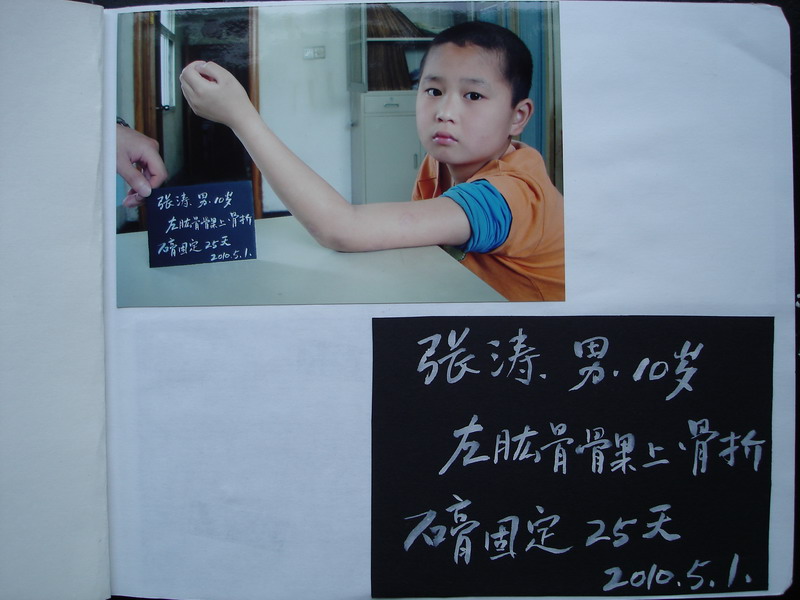 张涛.男.10岁
左肱骨髁上骨折
石膏固定25天
2010.5.1.
张涛.男.10岁
左肱骨髁上骨折
石膏固定 25天
2010.5.1.